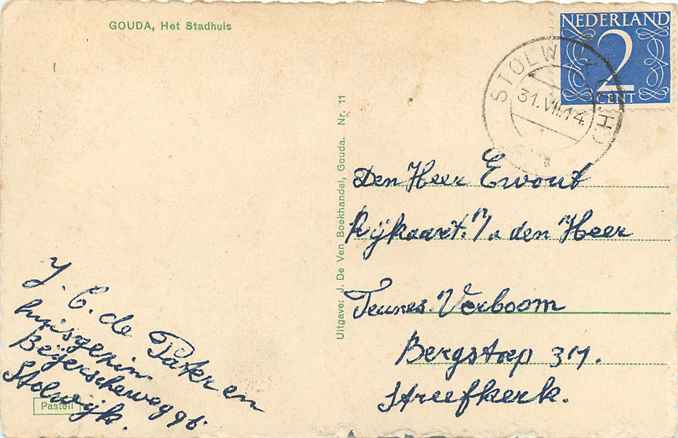 GOUDA, Het Stadhuis
NEDERLAND
2
CENT
STOLWIJK
31.VII.14
Uitgave: J. De Ven Boekhandel, Gouda. Nr. 11
Den Heer Ewout
Rijkaart. p/a den Heer
Teunes. Verboom
Bergstoep 31.
Streefkerk.
J. C. de Pater en
huisgezin
Beijerscheweg 96.
Stolwijk.
Pastell